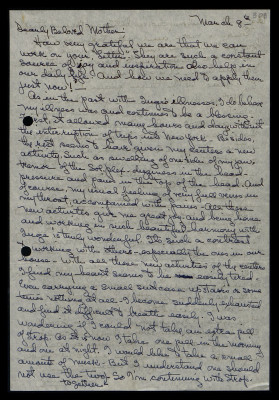 March 8th
Dearly Beloved Mother
How very grateful we are that we can
work on your "Letters". They are such a constant
source of joy and inspiration. Also help in
our daily life. And how we need to apply them
just now!
As in the past with Inge's illnesses, I do take
my illness was and continues to be a blessing
yet. It allowed many hours and days without
the interruption of trips into New York. Besides
my rest seems to have given my centers a new
activity such as
top of the solplex, dizziness in the head-
pressure and pain in the top of the head. And
of course my usual feeling of
my throat, accompanied with pains. All these
new activities give me great joy, and being home
and working in such beautiful harmony with
Inge is truly wonderful. It is such a contrast
working with others - especially the ones in our
house - with all these new activities of the centers
I find my heart seems to be easily tired.
Even carrying a small suitcase upstairs or some
times nothing at all - I become suddenly exhausted
and find it difficult to breathe easily. I was
wondering if I could not take an extra pill
of strop. As it is now I take one pill in the morning
and one at night. I would like to take a equal
amount of musk. But I understand one should
not use the two. So I'm continuing with strop.
together!